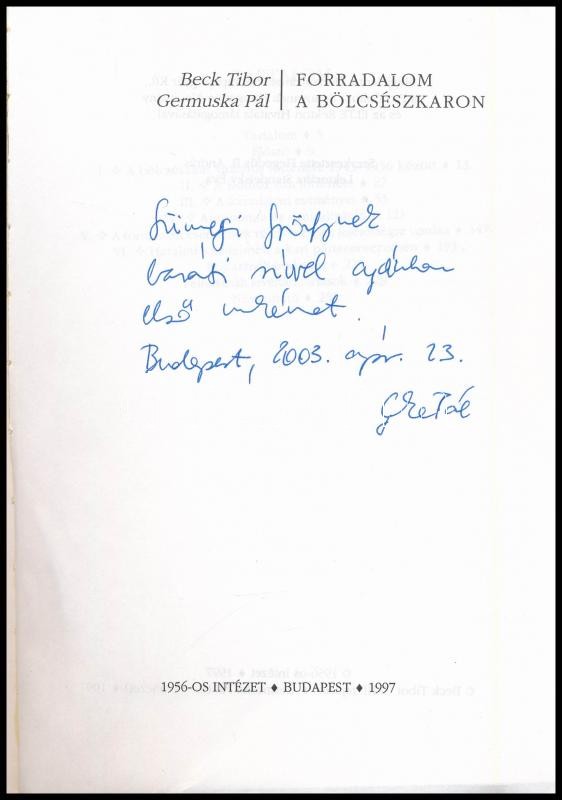 Beck Tibor
Germuska Pál
FORRADALOM
A BÖLCSÉSZKARON
Sümegi Györgynek
baráti szívvel ajánlom
első művemet.
Budapest, 2003. ápr. 23.
1956-OS INTÉZET ♦ BUDAPEST ♦ 1997